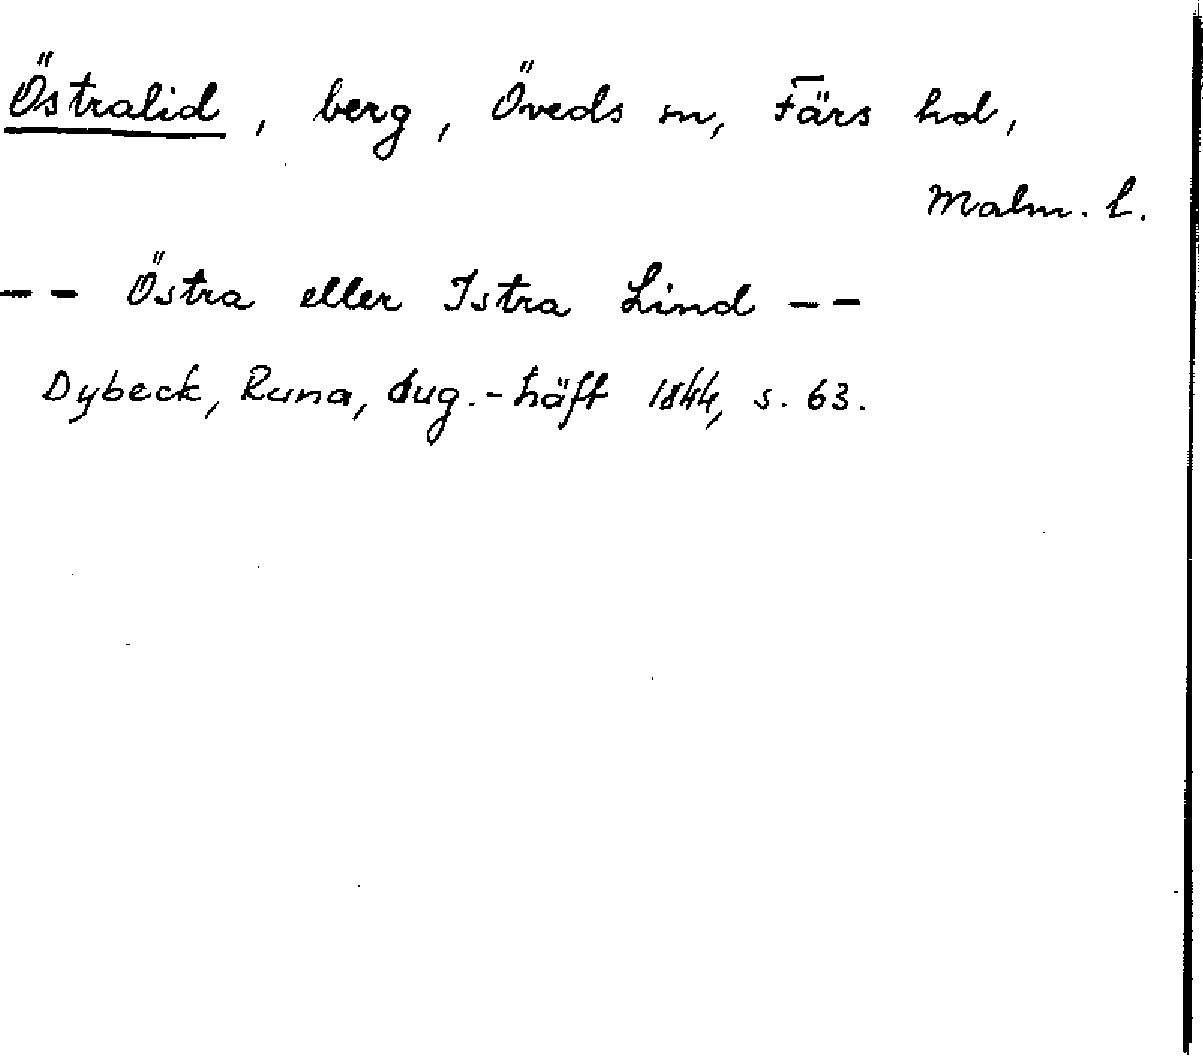 Östralid, berg, Öveds sn, Färs hd,
Malm. L.
-- Östra eller Istra Lind --
Dybeck, Runa, Aug.-häft 1844, s. 63.